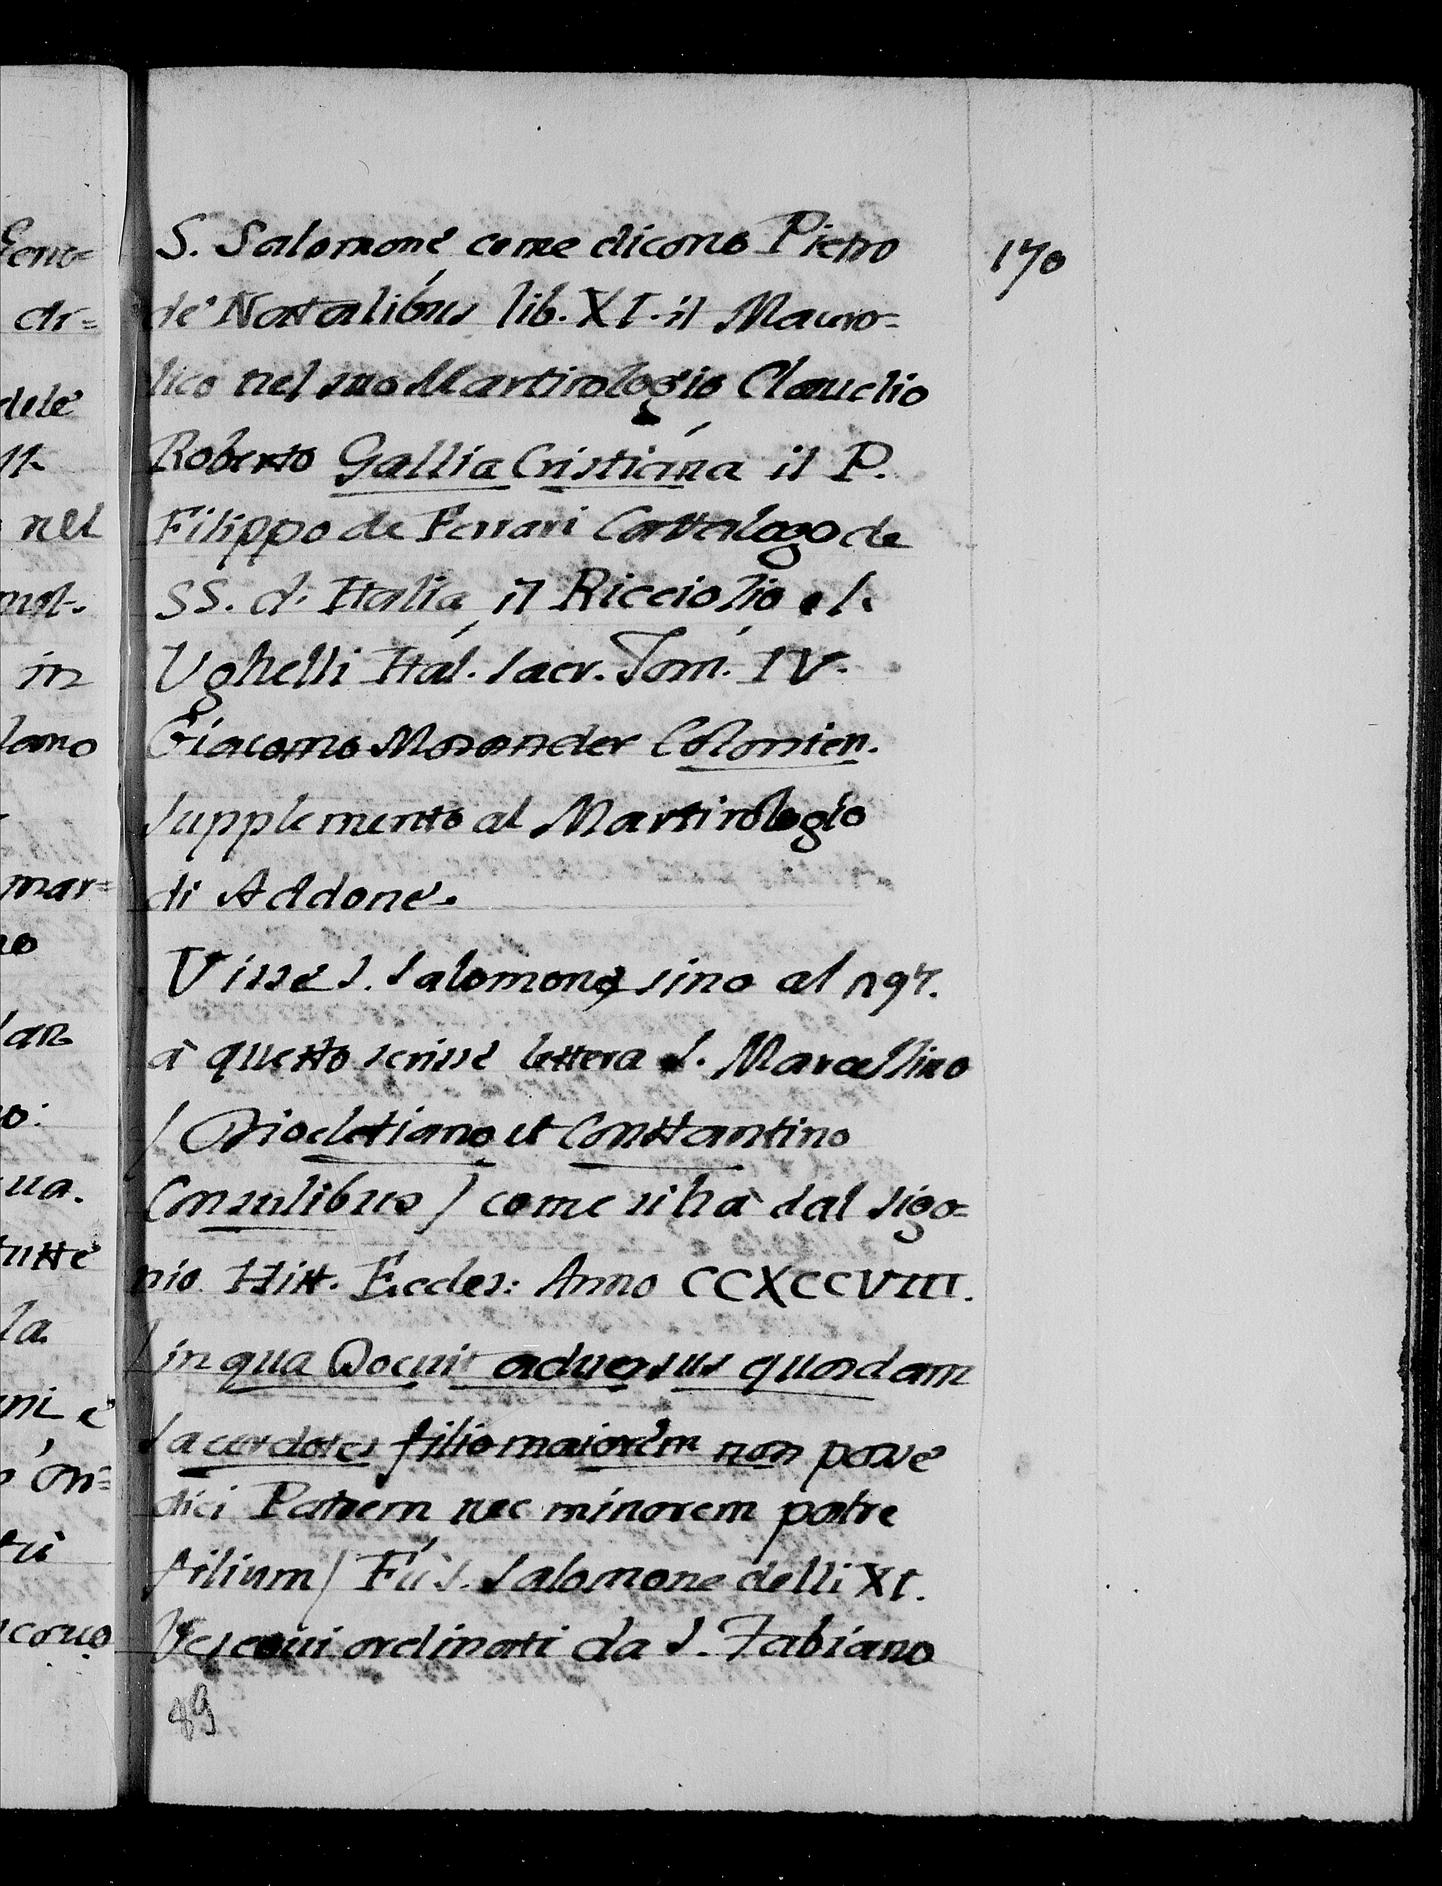 S. Salomone come dicono Pietro
170
de' Natalibus lib. XI. il Mauro=
lico nel suo Martirologio Claudio
Roberto Gallia Cristiana il P.
Filippo de Ferrari Cattalago de
SS. d. Italia, il Ricciolio el.
Ughelli Ital. Sacr. Tom. IV.
Giacomo Mosander Colonien.
supplemento al Martirologio
di Addone.
Visse S. Salomone sino al
à questo scrisse lettera S. Marcellino
( Diocletiano et Constantino
Consulibus ) come si hà dal Sigo=
nio Hist. Eccles: Anno CCXCCVIII.
( in qua Docuit aduersus quosdam
Sacerdotes filio maiorem non posse
dici Patrem nec minorem patre
filium ) Fù S. Salomone delli XI.
Vescoui ordinati da S. Fabiano
89
Geno=
di=
dele
nel
in
lano
mar=
no
lan
no:
tutte
la